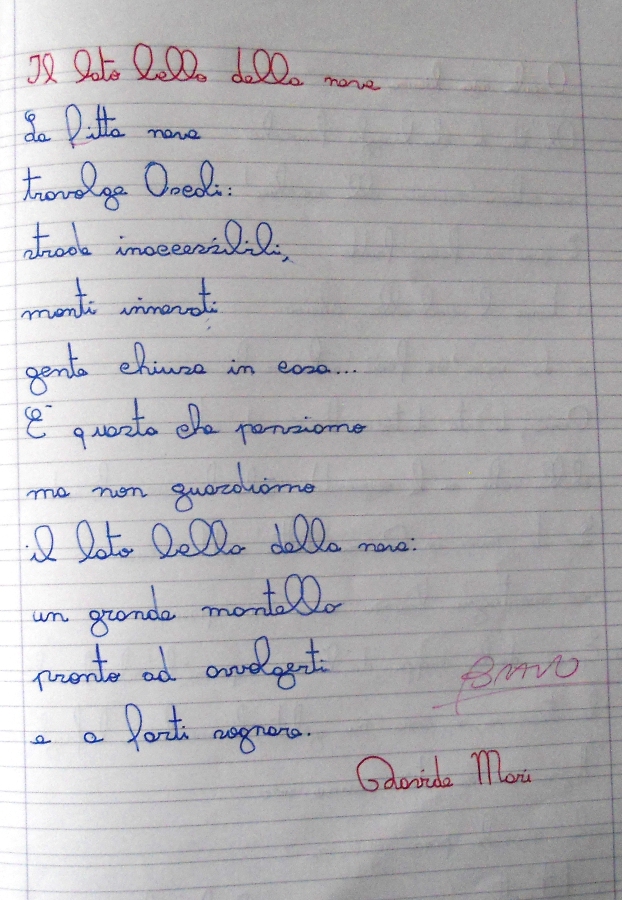 Il lato bello della neve
La fitta neve
travolge Oredi:
strade inaccessibili,
monti innevati
gente chiusa in casa...
È questo che pensiamo
ma non guardiamo
il lato bello della neve:
un grande mantello
pronto ad avvolgerti
e a farti sognare.
BRAVO
Davide Mori